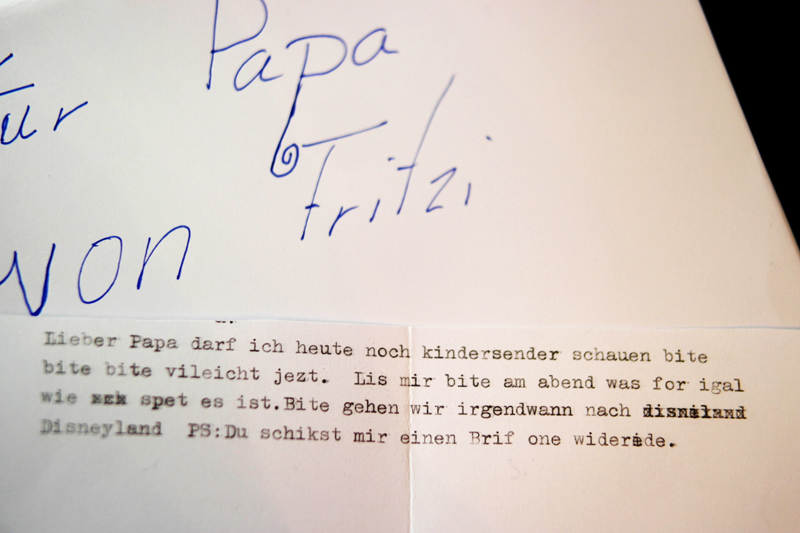 Für Papa
von Fritzi
Lieber Papa darf ich heute noch kindersender schauen bite
bite bite vileicht jezt. Lis mir bite am abend was for igal
wie spet es ist.Bite gehen wir irgendwann nach
Disneyland PS:Du schikst mir einen Brif one widerede.